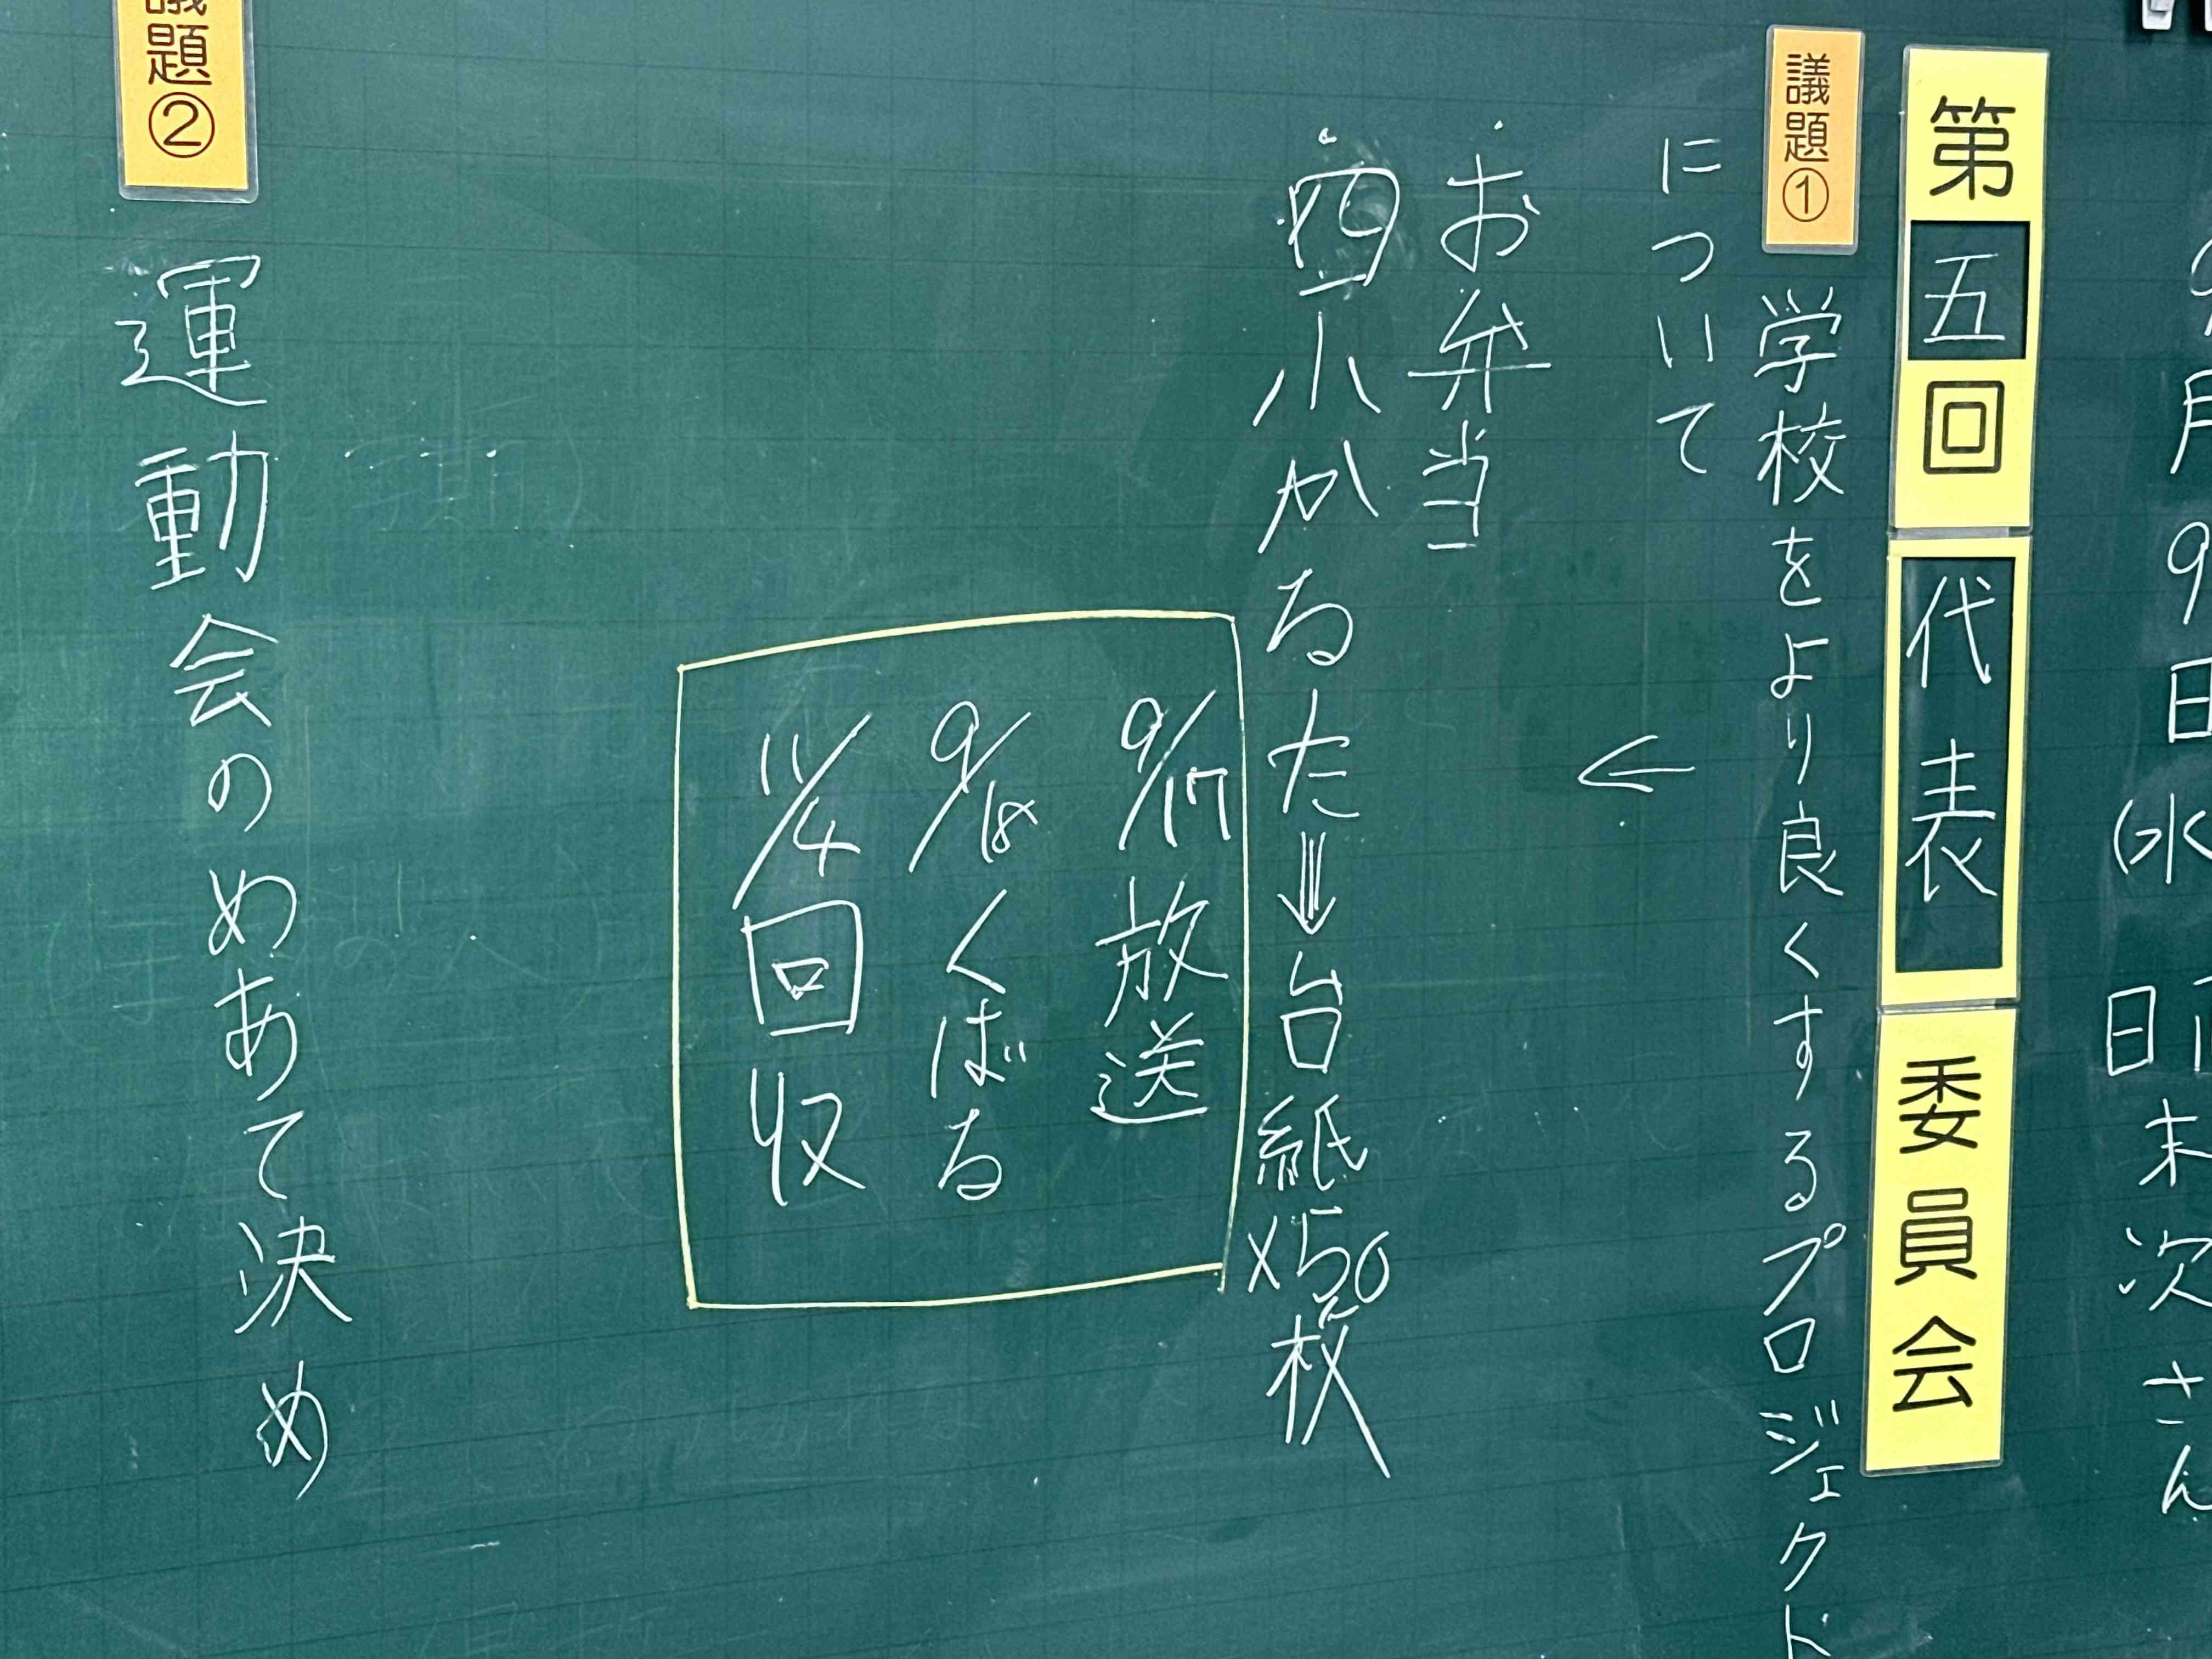 月9日(水
日 末次さん
第五回 代表 委員会
議題① 学校をより良くするプロジェクト
について
←
・お弁当
・四小かるた⇒台紙×50枚
9/17放送
9/18くばる
11/4回収
議題② 運動会のめあて決め